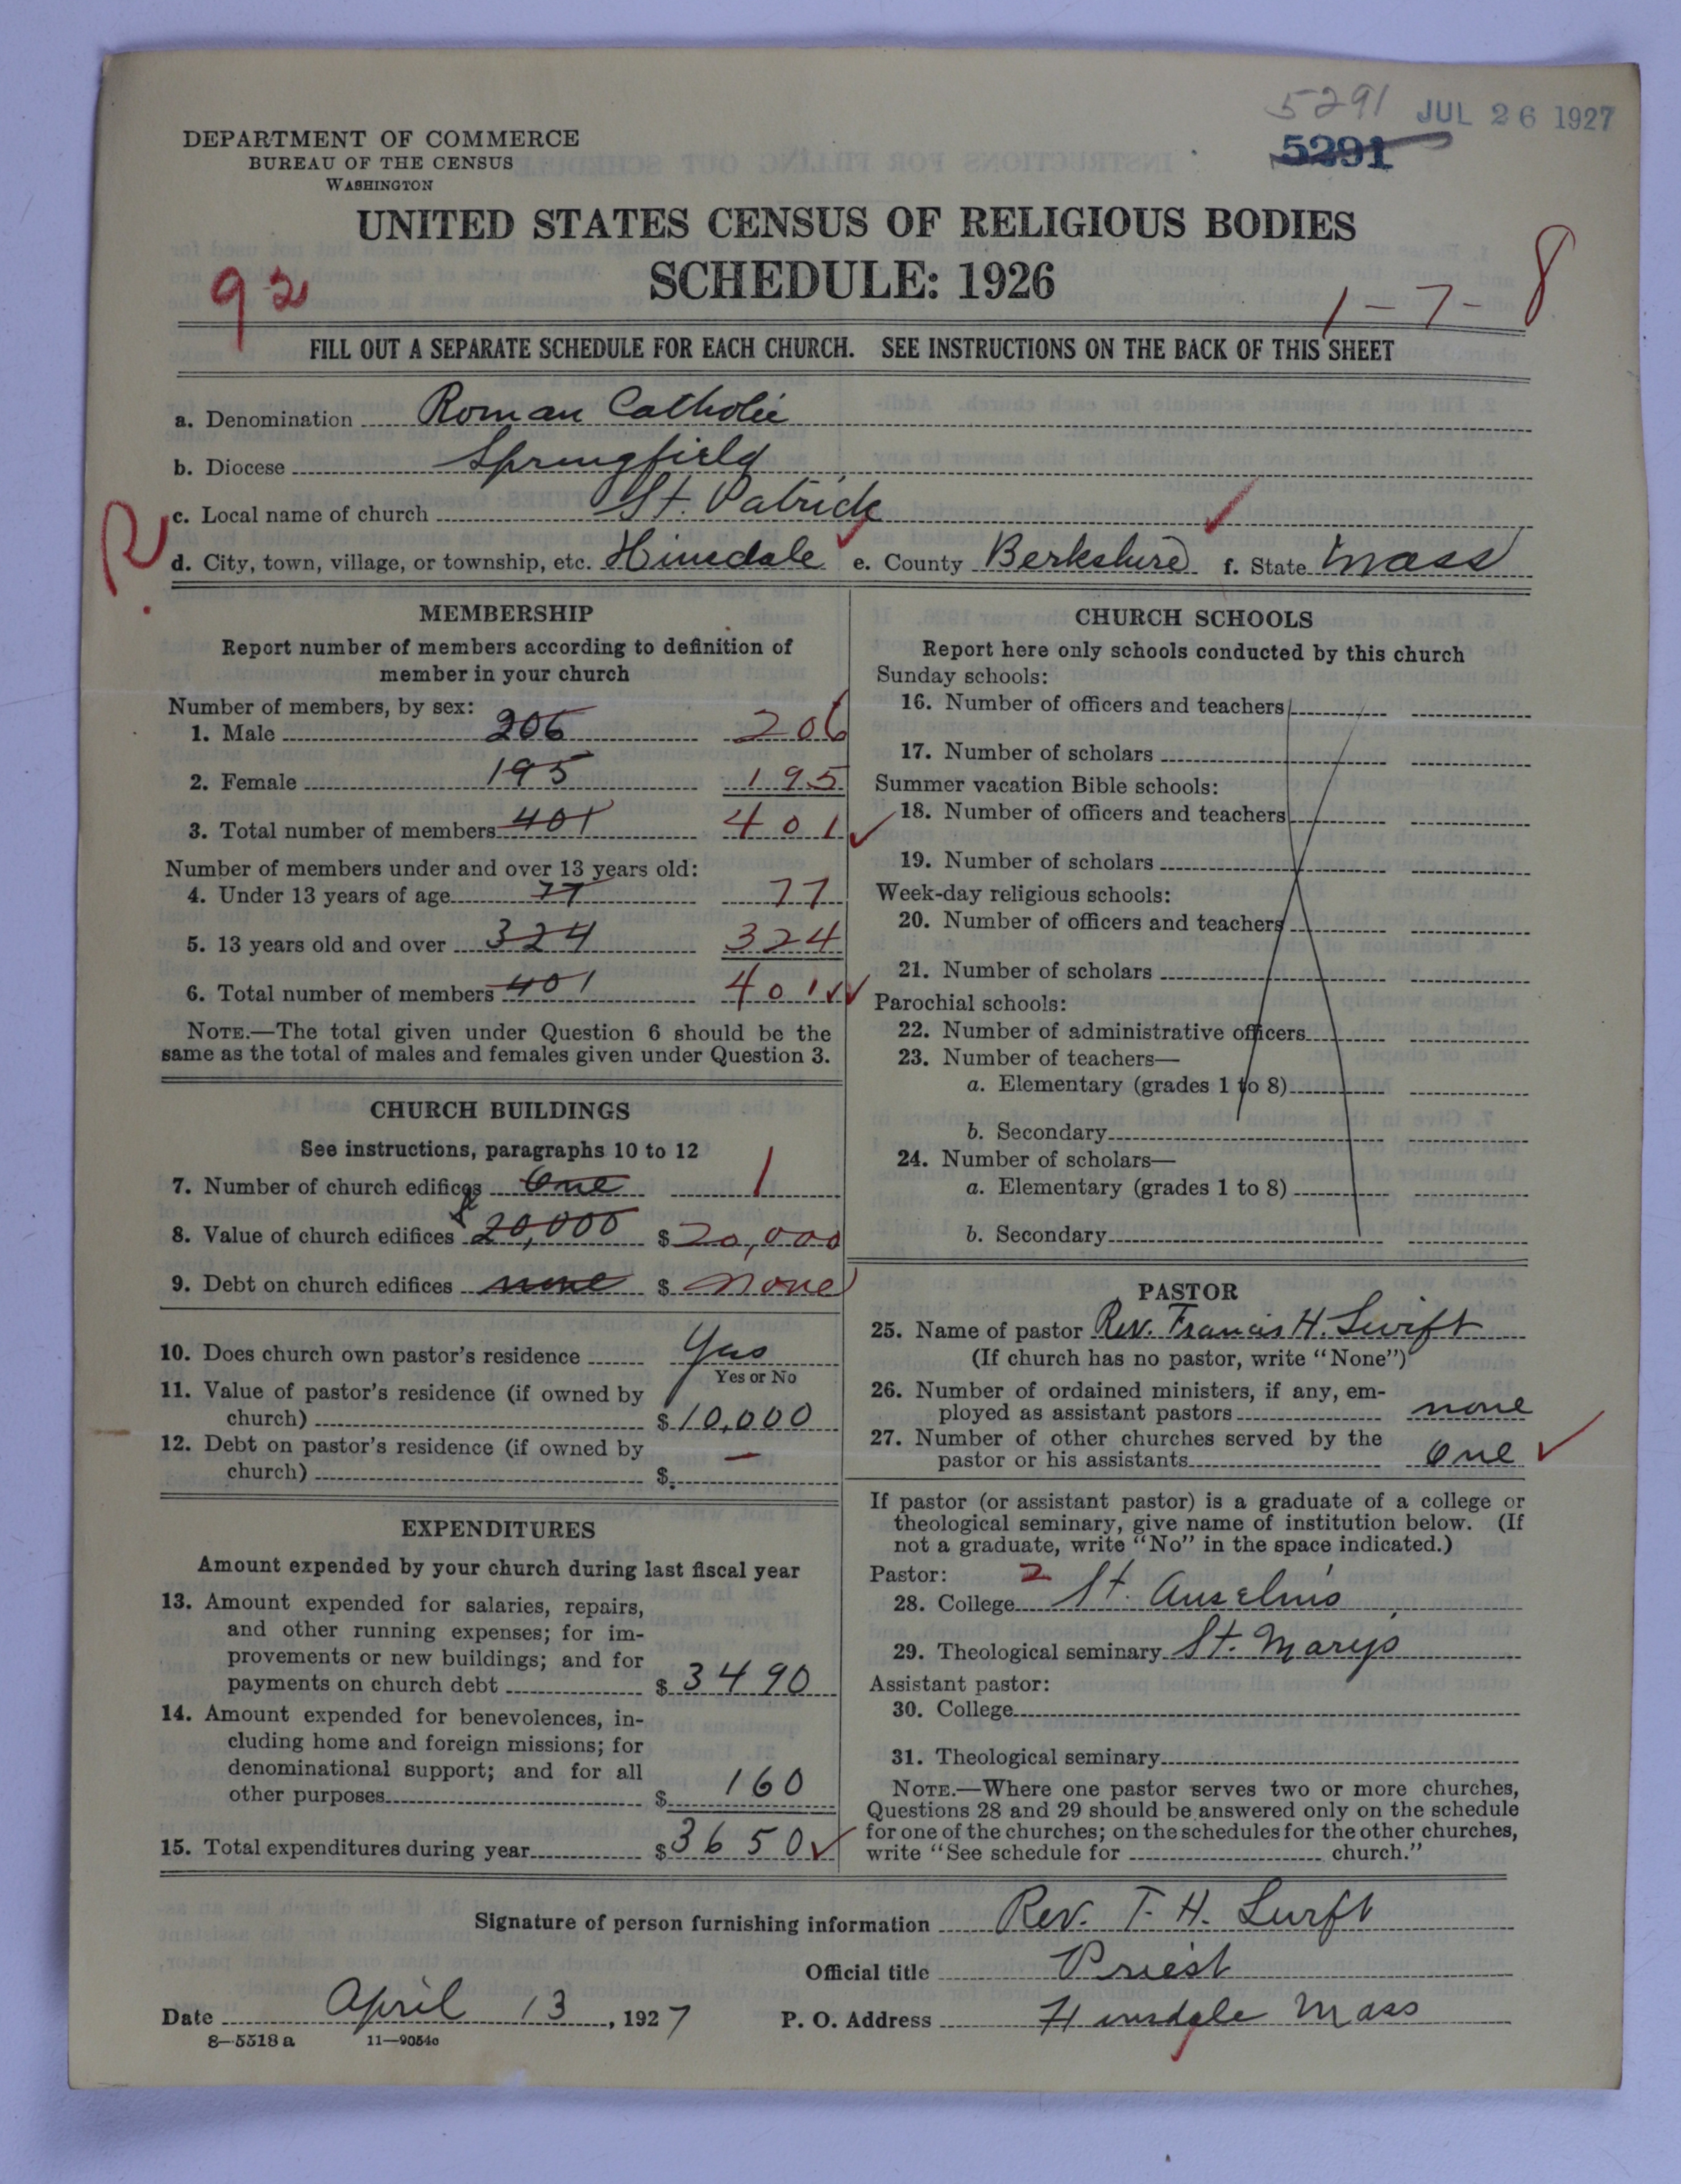 5291 JUL 26 1927
5291
DEPARTMENT OF COMMERCE
BUREAU OF THE CENSUS
WASHINGTON
UNITED STATES CENSUS OF RELIGIOUS BODIES
SCHEDULE: 1926
92
1-7-8
FILL OUT A SEPARATE SCHEDULE FOR EACH CHURCH. SEE INSTRUCTIONS ON THE BACK OF THIS SHEET
a. Denomination Roman Catholic
b. Diocese Springfield
c. Local name of church St. Patrick
R
d. City, town, village, or township, etc. Hinsdale e. County Berkshire f. State Mass
MEMBERSHIP
Report number of members according to definition of
member in your church
Number of members, by sex:
1. Male 206 206
2. Female 195 195
3. Total number of members 401 401
Number of members under and over 13 years old:
4. Under 13 years of age 77 77
5. 13 years old and over 324 324
6. Total number of members 401 401
NOTE.—The total given under Question 6 should be the
same as the total of males and females given under Question 3.
CHURCH BUILDINGS
See instructions, paragraphs 10 to 12
7. Number of church edifices One 1
8. Value of church edifices 20,000 $ 20,000
9. Debt on church edifices none $ none
10. Does church own pastor's residence Yes
Yes or No
11. Value of pastor's residence (if owned by
church) $ 10,000
12. Debt on pastor's residence (if owned by
church) $ —
EXPENDITURES
Amount expended by your church during last fiscal year
13. Amount expended for salaries, repairs,
and other running expenses; for im-
provements or new buildings; and for
payments on church debt $ 3490
14. Amount expended for benevolences, in-
cluding home and foreign missions; for
denominational support; and for all
other purposes $ 160
15. Total expenditures during year $ 3650
CHURCH SCHOOLS
Report here only schools conducted by this church
Sunday schools:
16. Number of officers and teachers
17. Number of scholars
Summer vacation Bible schools:
18. Number of officers and teachers
19. Number of scholars
Week-day religious schools:
20. Number of officers and teachers
21. Number of scholars
Parochial schools:
22. Number of administrative officers
23. Number of teachers—
a. Elementary (grades 1 to 8)
b. Secondary
24. Number of scholars—
a. Elementary (grades 1 to 8)
b. Secondary
PASTOR
25. Name of pastor Rev. Francis H. Swift
(If church has no pastor, write "None")
26. Number of ordained ministers, if any, em-
ployed as assistant pastors none
27. Number of other churches served by the
pastor or his assistants One
If pastor (or assistant pastor) is a graduate of a college or
theological seminary, give name of institution below. (If
not a graduate, write "No" in the space indicated.)
Pastor: 2
28. College St. Anselm's
29. Theological seminary St. Marys
Assistant pastor:
30. College
31. Theological seminary
NOTE.—Where one pastor serves two or more churches,
Questions 28 and 29 should be answered only on the schedule
for one of the churches; on the schedules for the other churches,
write "See schedule for church."
Signature of person furnishing information Rev. F. H. Swift
Official title Priest
Date April 13, 1927 P. O. Address Hinsdale Mass
8—5518 a 11—9054c